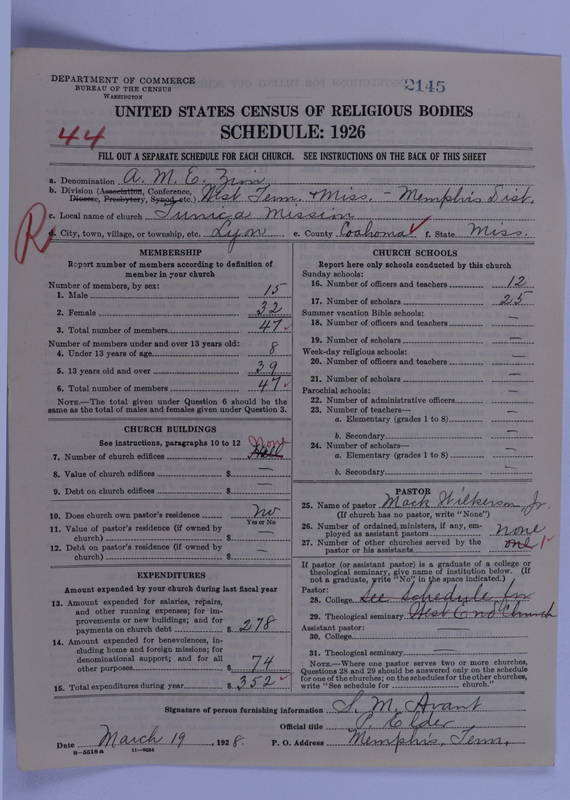 DEPARTMENT OF COMMERCE
BUREAU OF THE CENSUS
WASHINGTON
2145
UNITED STATES CENSUS OF RELIGIOUS BODIES
SCHEDULE: 1926
44
FILL OUT A SEPARATE SCHEDULE FOR EACH CHURCH. SEE INSTRUCTIONS ON THE BACK OF THIS SHEET
a. Denomination A. M. E. Zion
b. Division (Association, Conference, Diocese, Presbytery, Synod, etc.) West Tenn. & Miss. - Memphis Dist.
c. Local name of church Tunica Mission
R
d. City, town, village, or township, etc. Lyon e. County Coahoma ✓ f. State Miss.
MEMBERSHIP
Report number of members according to definition of
member in your church
Number of members, by sex:
1. Male 15
2. Female 32
3. Total number of members 47 ✓
Number of members under and over 13 years old:
4. Under 13 years of age 8
5. 13 years old and over 39
6. Total number of members 47 ✓
NOTE.—The total given under Question 6 should be the
same as the total of males and females given under Question 3.
CHURCH BUILDINGS
See instructions, paragraphs 10 to 12
7. Number of church edifices Hall none
8. Value of church edifices $ —
9. Debt on church edifices $ —
10. Does church own pastor's residence no
Yes or No
11. Value of pastor's residence (if owned by
church) $ —
12. Debt on pastor's residence (if owned by
church) $ —
EXPENDITURES
Amount expended by your church during last fiscal year
13. Amount expended for salaries, repairs,
and other running expenses; for im-
provements or new buildings; and for
payments on church debt $ 278
14. Amount expended for benevolences, in-
cluding home and foreign missions; for
denominational support; and for all
other purposes $ 74
15. Total expenditures during year $ 352 ✓
CHURCH SCHOOLS
Report here only schools conducted by this church
Sunday schools:
16. Number of officers and teachers 12
17. Number of scholars 25
Summer vacation Bible schools:
18. Number of officers and teachers —
19. Number of scholars —
Week-day religious schools:
20. Number of officers and teachers —
21. Number of scholars —
Parochial schools:
22. Number of administrative officers —
23. Number of teachers—
a. Elementary (grades 1 to 8) —
b. Secondary —
24. Number of scholars—
a. Elementary (grades 1 to 8) —
b. Secondary —
PASTOR
25. Name of pastor Mack Wilkerson, Jr.
(If church has no pastor, write "None")
26. Number of ordained ministers, if any, em-
ployed as assistant pastors none
27. Number of other churches served by the
pastor or his assistants one 1 ✓
If pastor (or assistant pastor) is a graduate of a college or
theological seminary, give name of institution below. (If
not a graduate, write "No" in the space indicated.)
Pastor:
28. College See schedule for
29. Theological seminary West End Church
Assistant pastor:
30. College
31. Theological seminary —
NOTE.—Where one pastor serves two or more churches,
Questions 28 and 29 should be answered only on the schedule
for one of the churches; on the schedules for the other churches,
write "See schedule for church."
Signature of person furnishing information S. M. Avant
Official title P. Elder
Date March 19, 1928. P. O. Address Memphis, Tenn.
8—5518a 11—9024